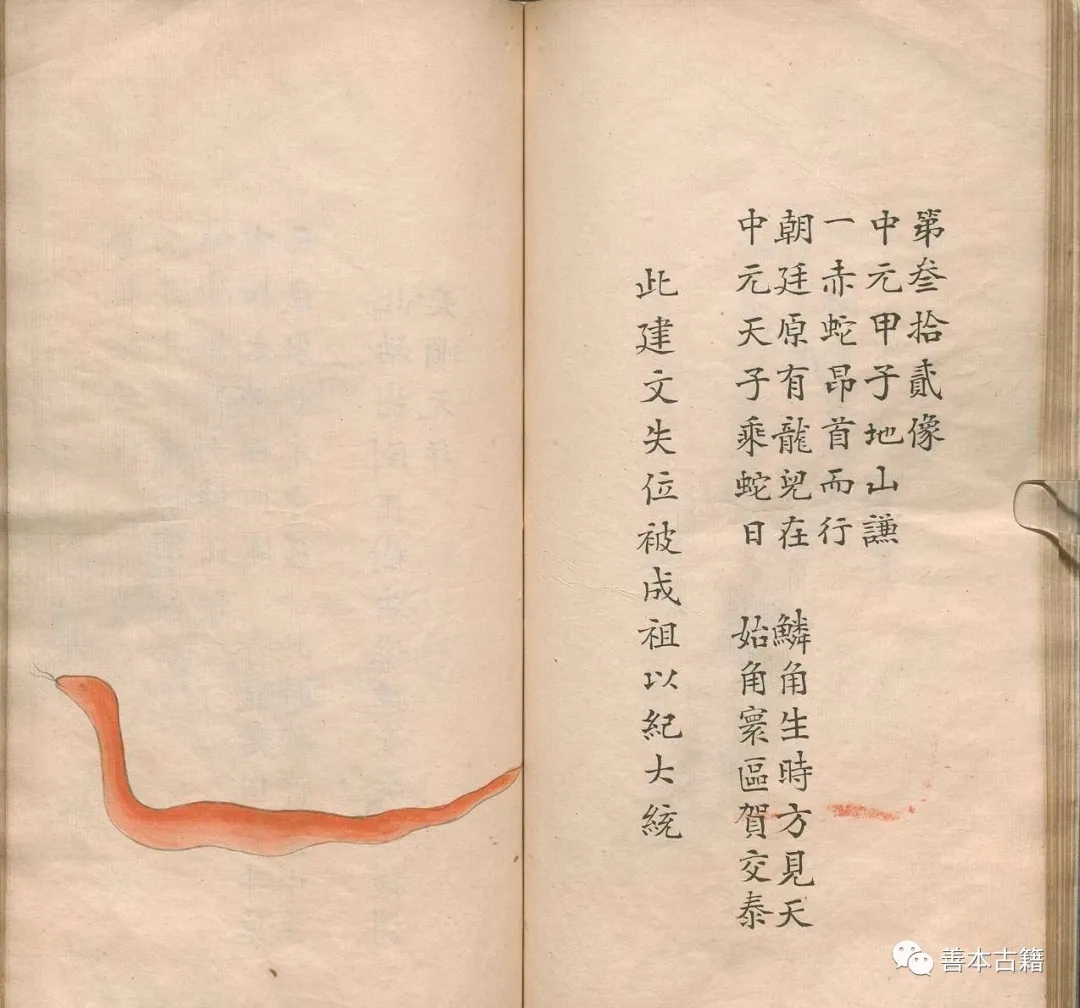 第叁拾貳像
中元甲子地山謙
一赤蛇昂首而行
朝廷原有龍兒在　鱗角生時方見天
中元天子乘蛇日　始角寰區賀交泰
此建文失位被成祖以紀大統
善本古籍